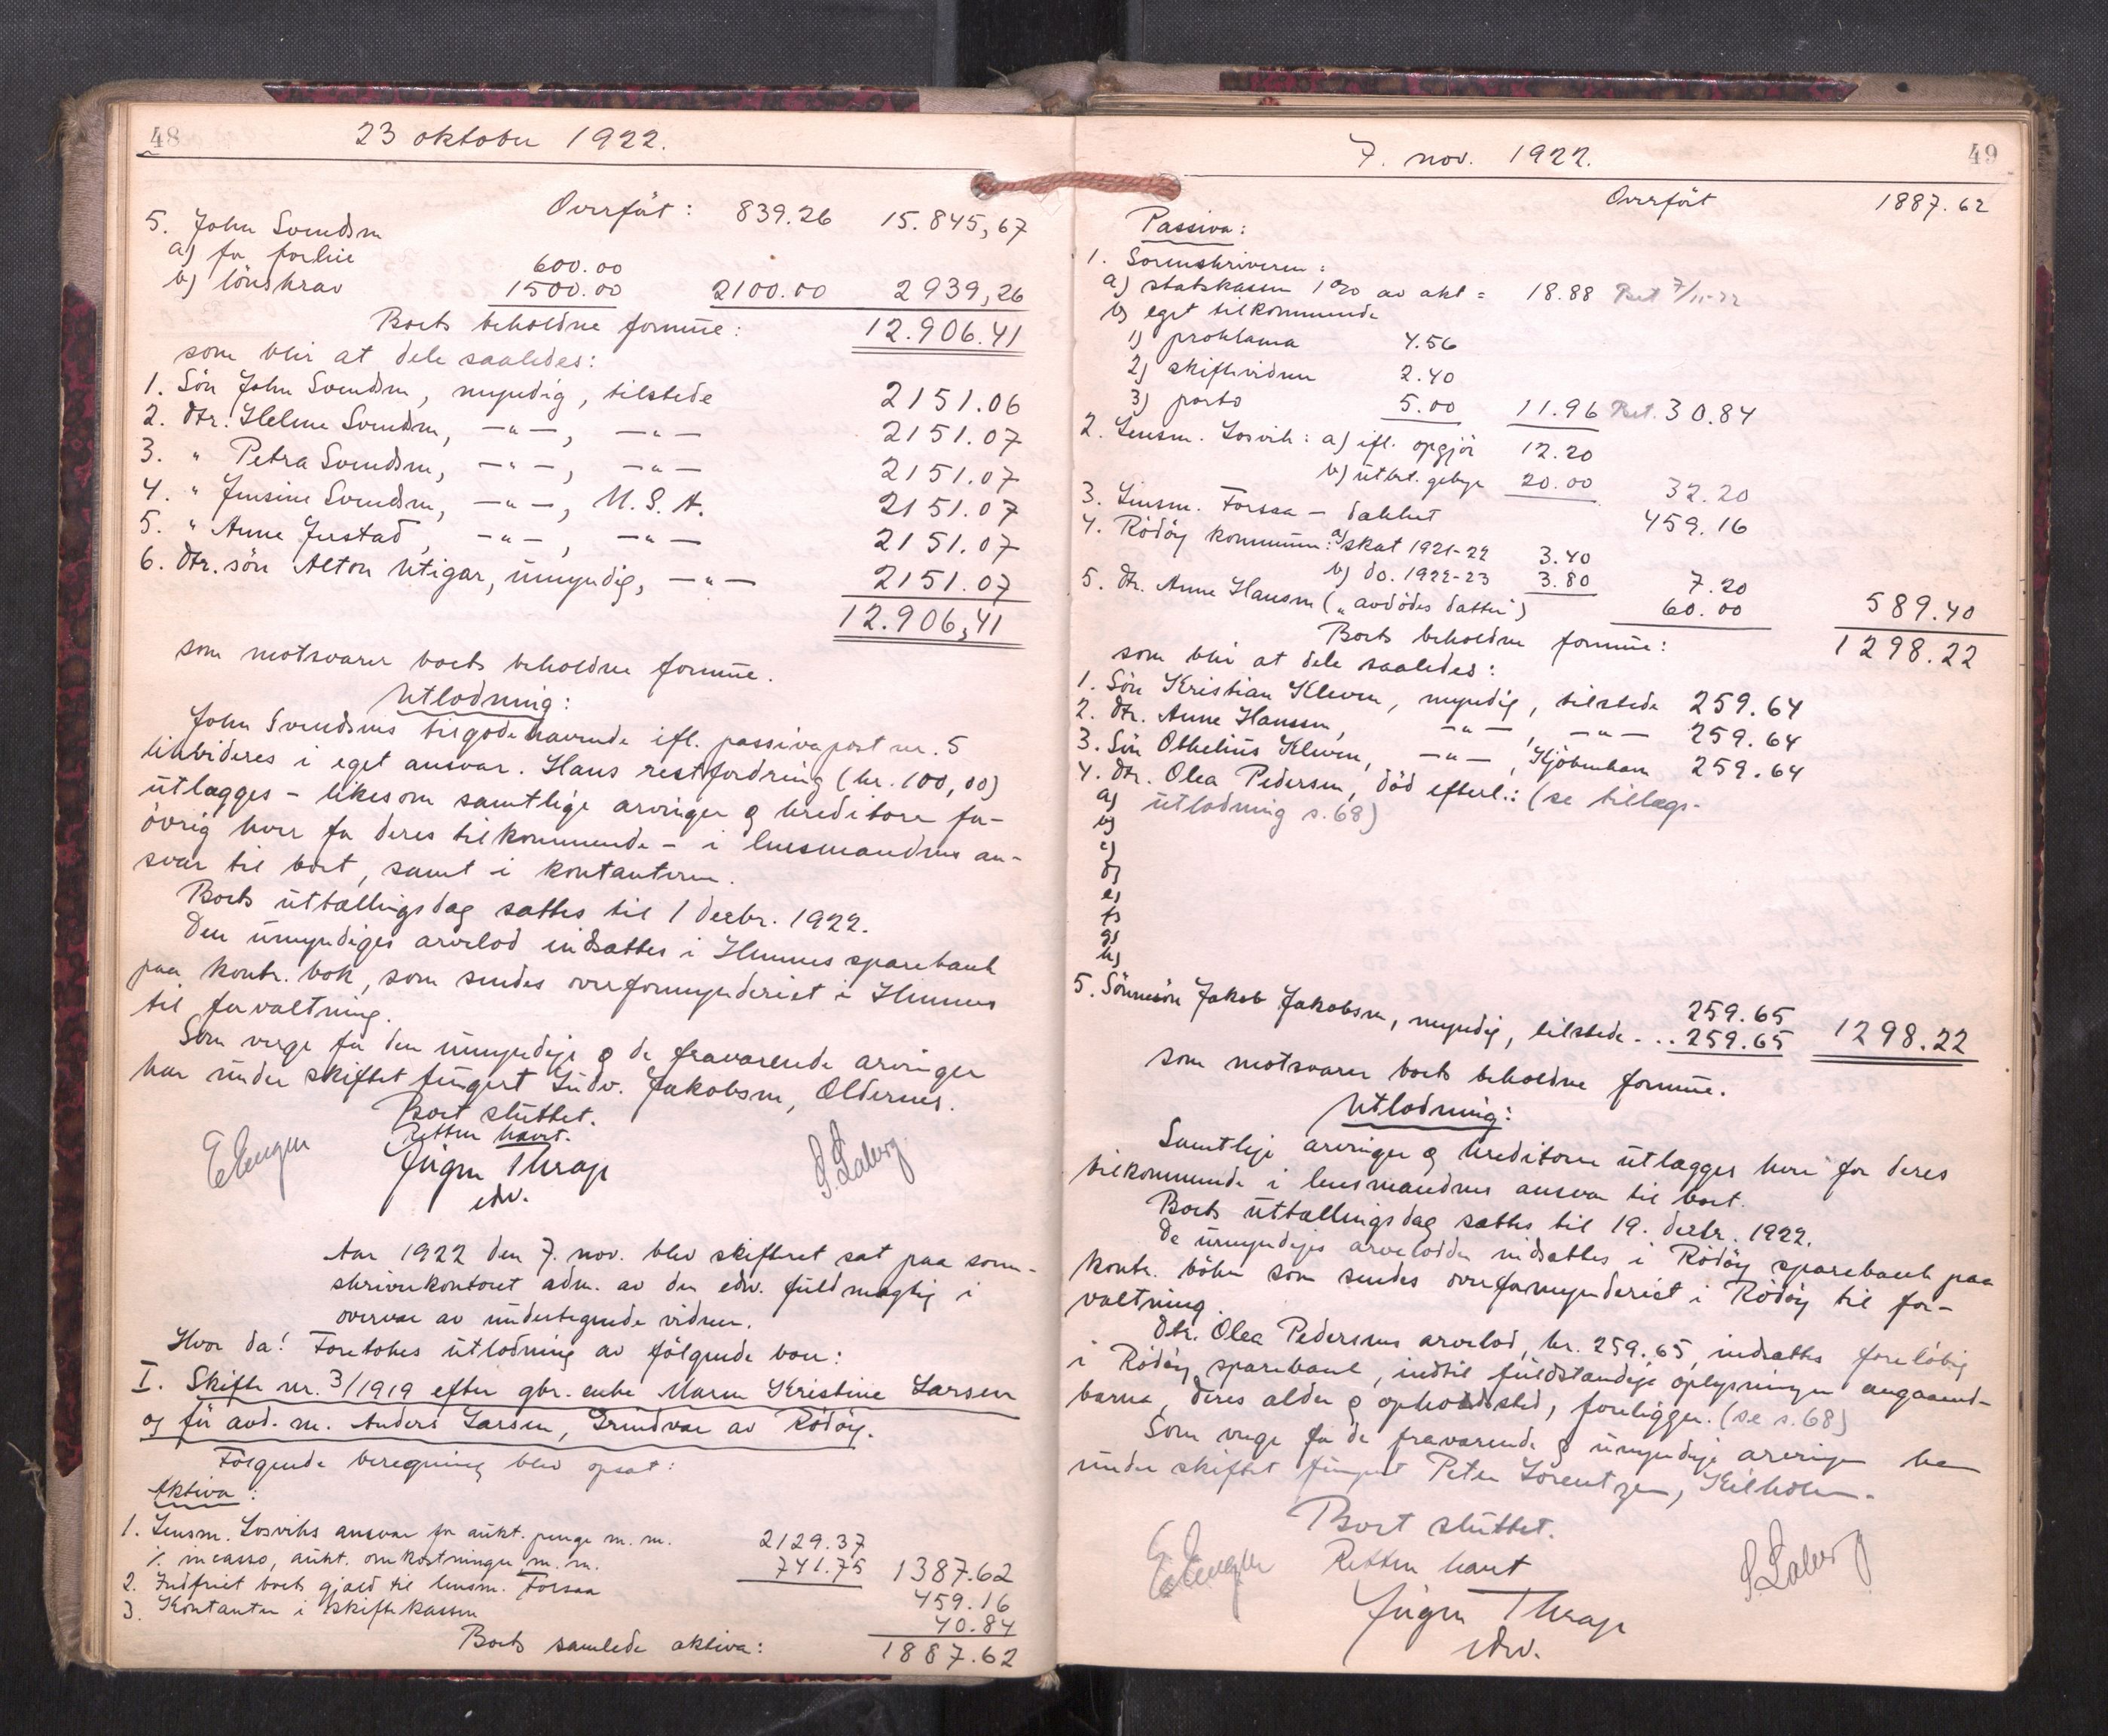 48
23 oktober 1922.
Overført: 839.26 15.845,67
5. John Svendsen
a) for forleie 600.00
b) lönskrav 1500.00 2100.00 2939,26
Boets beholdne formue: 12.906.41
som blir at dele saaledes:
1. Sön John Svendsen, myndig, tilstede 2151.06
2. dtr. Helene Svendsen, —"—, —"— 2151.07
3. " Petra Svendsen, —"—, —"— 2151.07
4. " Jensine Svendsen, —"—, U.S.A. 2151.07
5. " Anne Justad, —"—, —"— 2151.07
6. dtr. sön Alton Utigar, umyndig, —"— 2151.07
12.906,41
som motsvarer boets beholdne formue.
Utlodning:
John Svendsens tilgodehavende ifl. passivapost nr. 5
likvideres i eget ansvar. Hans restfordring (kr. 100,00)
utlægges – likesom samtlige arvinger og kreditorer for-
övrig hver for deres tilkommende – i lensmandens an-
svar til boet, samt i kontanterne.
Boets utbetalingsdag sættes til 1 decbr. 1922.
Den umyndiges arvelod indsættes i Hemnes sparebank
paa kontr. bok, som sendes overformynderiet i Hemnes
til forvaltning.
Som verge for den umyndige og de fraværende arvinger
har under skiftet fungert Ludv. Jakobsen, Oldernes.
Boet sluttet.
Retten hævet.
Jürgen Thrap
edv.
Aar 1922 den 7. nov. blev skifteret sat paa soren-
skriverkontoret adm. av den edv. fuldmægtig i
overvær av undertegnede vidner.
Hvor da! Foretokes utlodning av fölgende boer:
I. Skifte nr. 3/1919 efter gbr. enke Maren Kristine Larsen
og för avd. m. Anders Larsen, Grundvær av Rödöy.
Fölgende beregning blev opsat:
Aktiva:
1. Lensm. Losviks ansvar for aukt. penge m. m. 2129.37
÷ incasso, aukt. omkostninger m. m. 741.75 1387.62
2. Indfriet boets gjæld til lensm. Forsaa 459.16
3. Kontanter i skiftekassen 40.84
Boets samlede aktiva: 1887.62
49
7. nov. 1922.
Overfört 1887.62
Passiva:
1. Sorenskriveren:
a) statskassen 1% av akt = 18.88 Bet 7/11-22
b) eget tilkommende
1) proklama 4.56
2) skiftevidner 2.40
3) porto 5.00 11.96 Bet. 30.84
2. Lensm. Losvik: a) ifl. opgjör 12.20
b) utbet. gebyr 20.00 32.20
3. Lensm. Forsaa – dækket 459.16
4. Rödöy kommune: a) skat 1921-22 3.40
b) do. 1922-23 3.80 7.20
5. dtr. Anne Hansen („avdödes datter") 60.00 589.40
Boets beholdne formue: 1298.22
som blir at dele saaledes:
1. Sön Kristian Kleven, myndig, tilstede 259.64
2. dtr. Anne Hanssen, —"—, —"— 259.64
3. Sön Othelius Kleven, —"—, Kjöbenhavn 259.64
4. dtr. Olea Pedersen, död efterl.: (se tillægs-
a) utlodning s. 68)
b)
c)
d)
e)
f)
g)
h)
259.65
5. Sönnesön Jakob Jakobsen, myndig, tilstede ... 259.65 1298.22
som motsvarer boets beholdne formue.
Utlodning:
Samtlige arvinger og kreditorer utlægges hver for deres
tilkommende i lensmandens ansvar til boet.
Boets utbetalingsdag sættes til 19. decbr. 1922.
De umyndiges arvelodder indsættes i Rödöy sparebank paa
kontr. böker som sendes overformynderiet i Rödöy til for-
valtning.
Dtr. Olea Pedersens arvelod, kr. 259.65, indsættes foreløbig
i Rödöy sparebank, indtil fuldstændige oplysninger angaaende
barna, deres alder og opholdssted, foreligger. (se s. 68)
Som verge for de fraværende og umyndige arvinger har
under skiftet fungert Peter Lorentzen, Selholm.
Boet sluttet.
Retten hævet
Jürgen Thrap
edv.